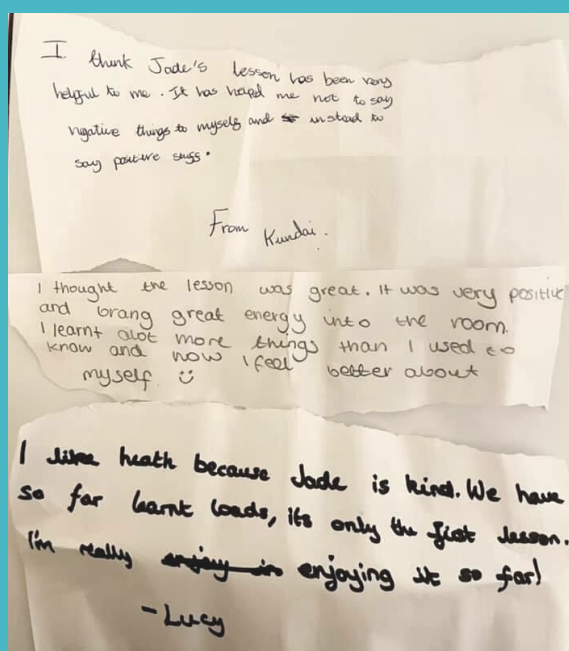 I think Jade's lesson has been very
helpful to me. It has helped me not to say
negative things to myself and so instead to
say positive stuff.
From Kundai.
I thought the lesson was great. It was very positive
and brang great energy into the room.
I learnt alot more things than I used to
know and now I feel better about
myself. ☺
I like heath because Jade is kind. We have
so far learnt loads, its only the first lesson.
I'm really enjoy in enjoying it so far!
-Lucy